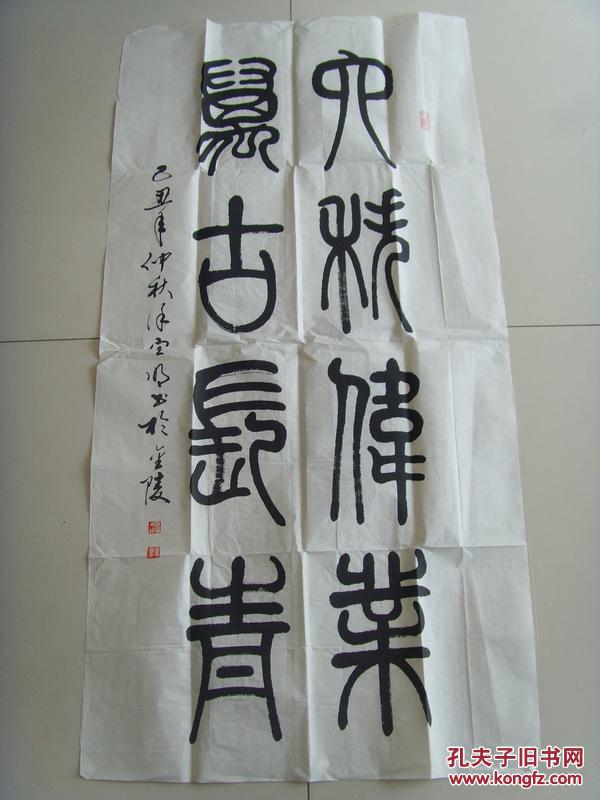 六秩偉業
萬古長青
己丑年仲秋 书於金陵
孔夫子旧书网
www.kongfz.com